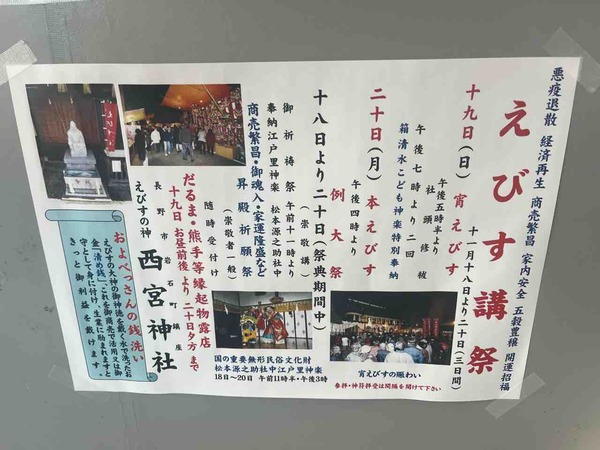 悪疫退散 経済再生 商売繁昌 家内安全 五穀豊穣 開運招福
えびす講祭
十一月十八日より二十日(三日間)
十九日(日) 宵えびす
午後五時半より
社頭修祓
午後七時より二回
箱清水こども神楽特別奉納
二十日(月) 本えびす
午後四時より
例大祭
十八日より二十日(祭典期間中)
(崇敬講)
御祈祷祭 午前十一時より
奉納江戸里神楽 松本源之助社中
商売繁昌・御魂入・家運隆盛など
昇殿祈願祭
(崇敬者一般)
随時受付け
だるま・熊手等縁起物露店
十九日 お昼前後より 二十日夕方まで
長野市岩石町鎮座
えびすの神 西宮神社
およべっさんの銭洗い
えびすの大神の御神徳を戴く水で洗ったお
金「清め銭」、これを御商売で活用又は御
守として身に付け、生業に励まれますと
きっと御利益を戴けます。
国の重要無形民俗文化財
松本源之助社中江戸里神楽
18日~20日 午前11時半・午後3時
宵えびすの賑わい
参拝・神符拝受は間隔を開けて下さい